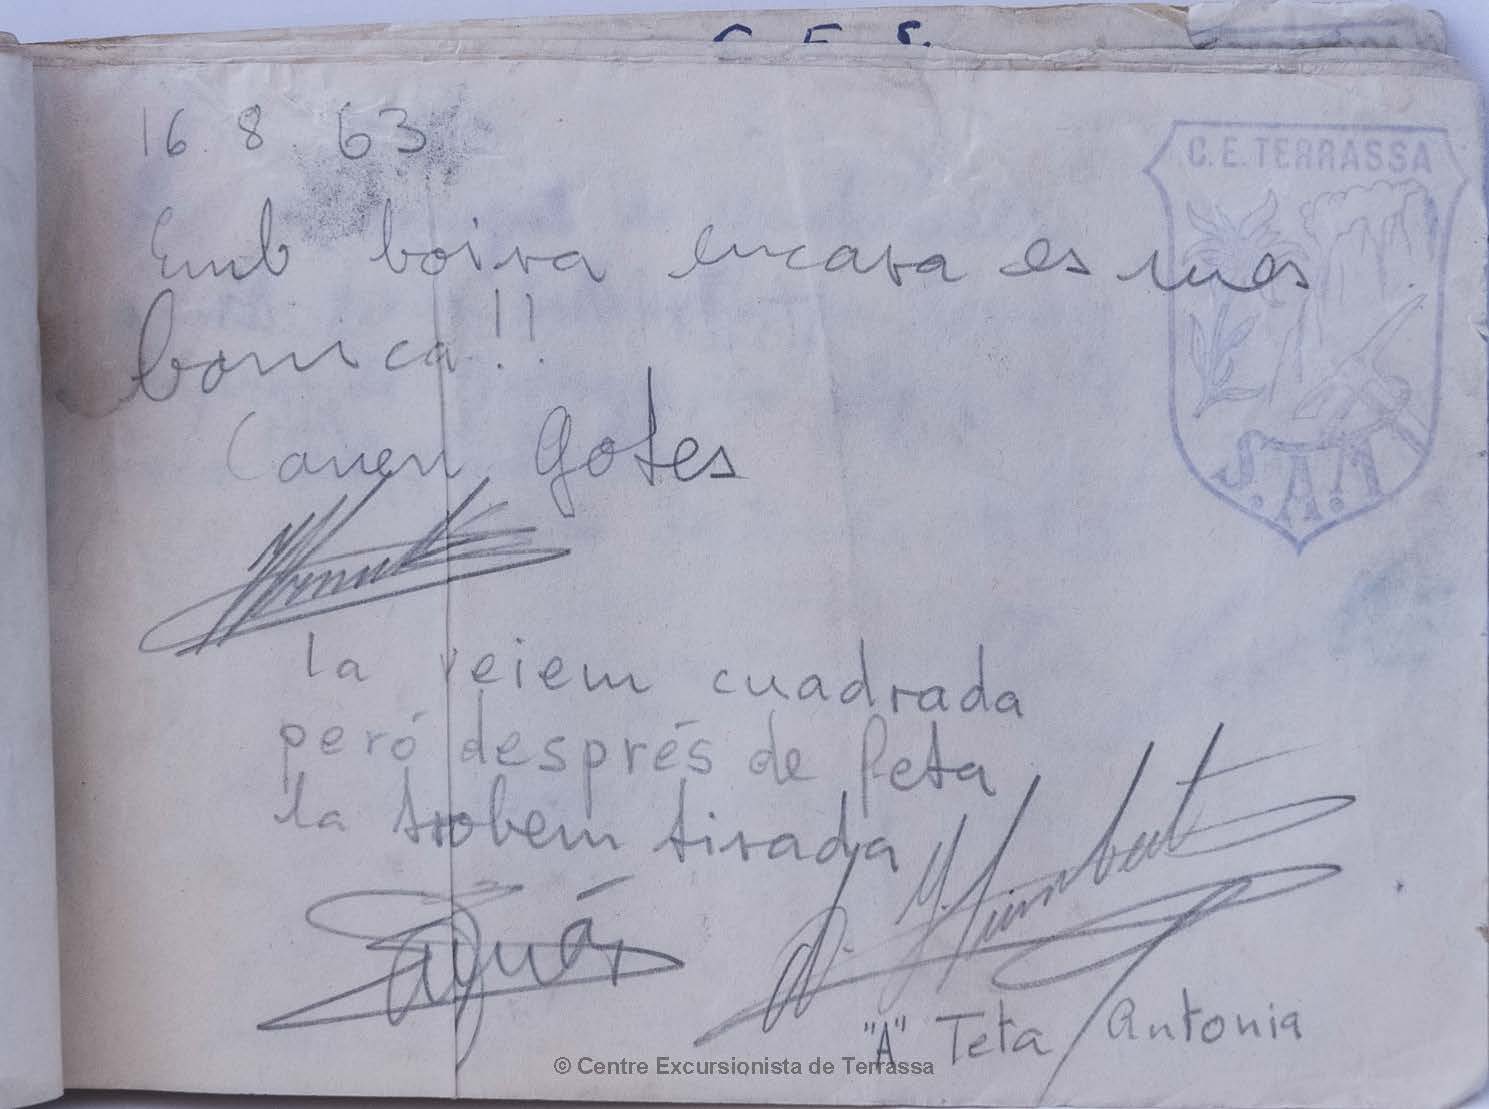 C. E. S.
16. 8. 63
C. E. TERRASSA
Emb boira encara es mes
bonica!!
Cauen gotes
S.A.T.
la veiem cuadrada
peró després de Peta
la trobem tirada
"A" Teta Antonia
© Centre Excursionista de Terrassa